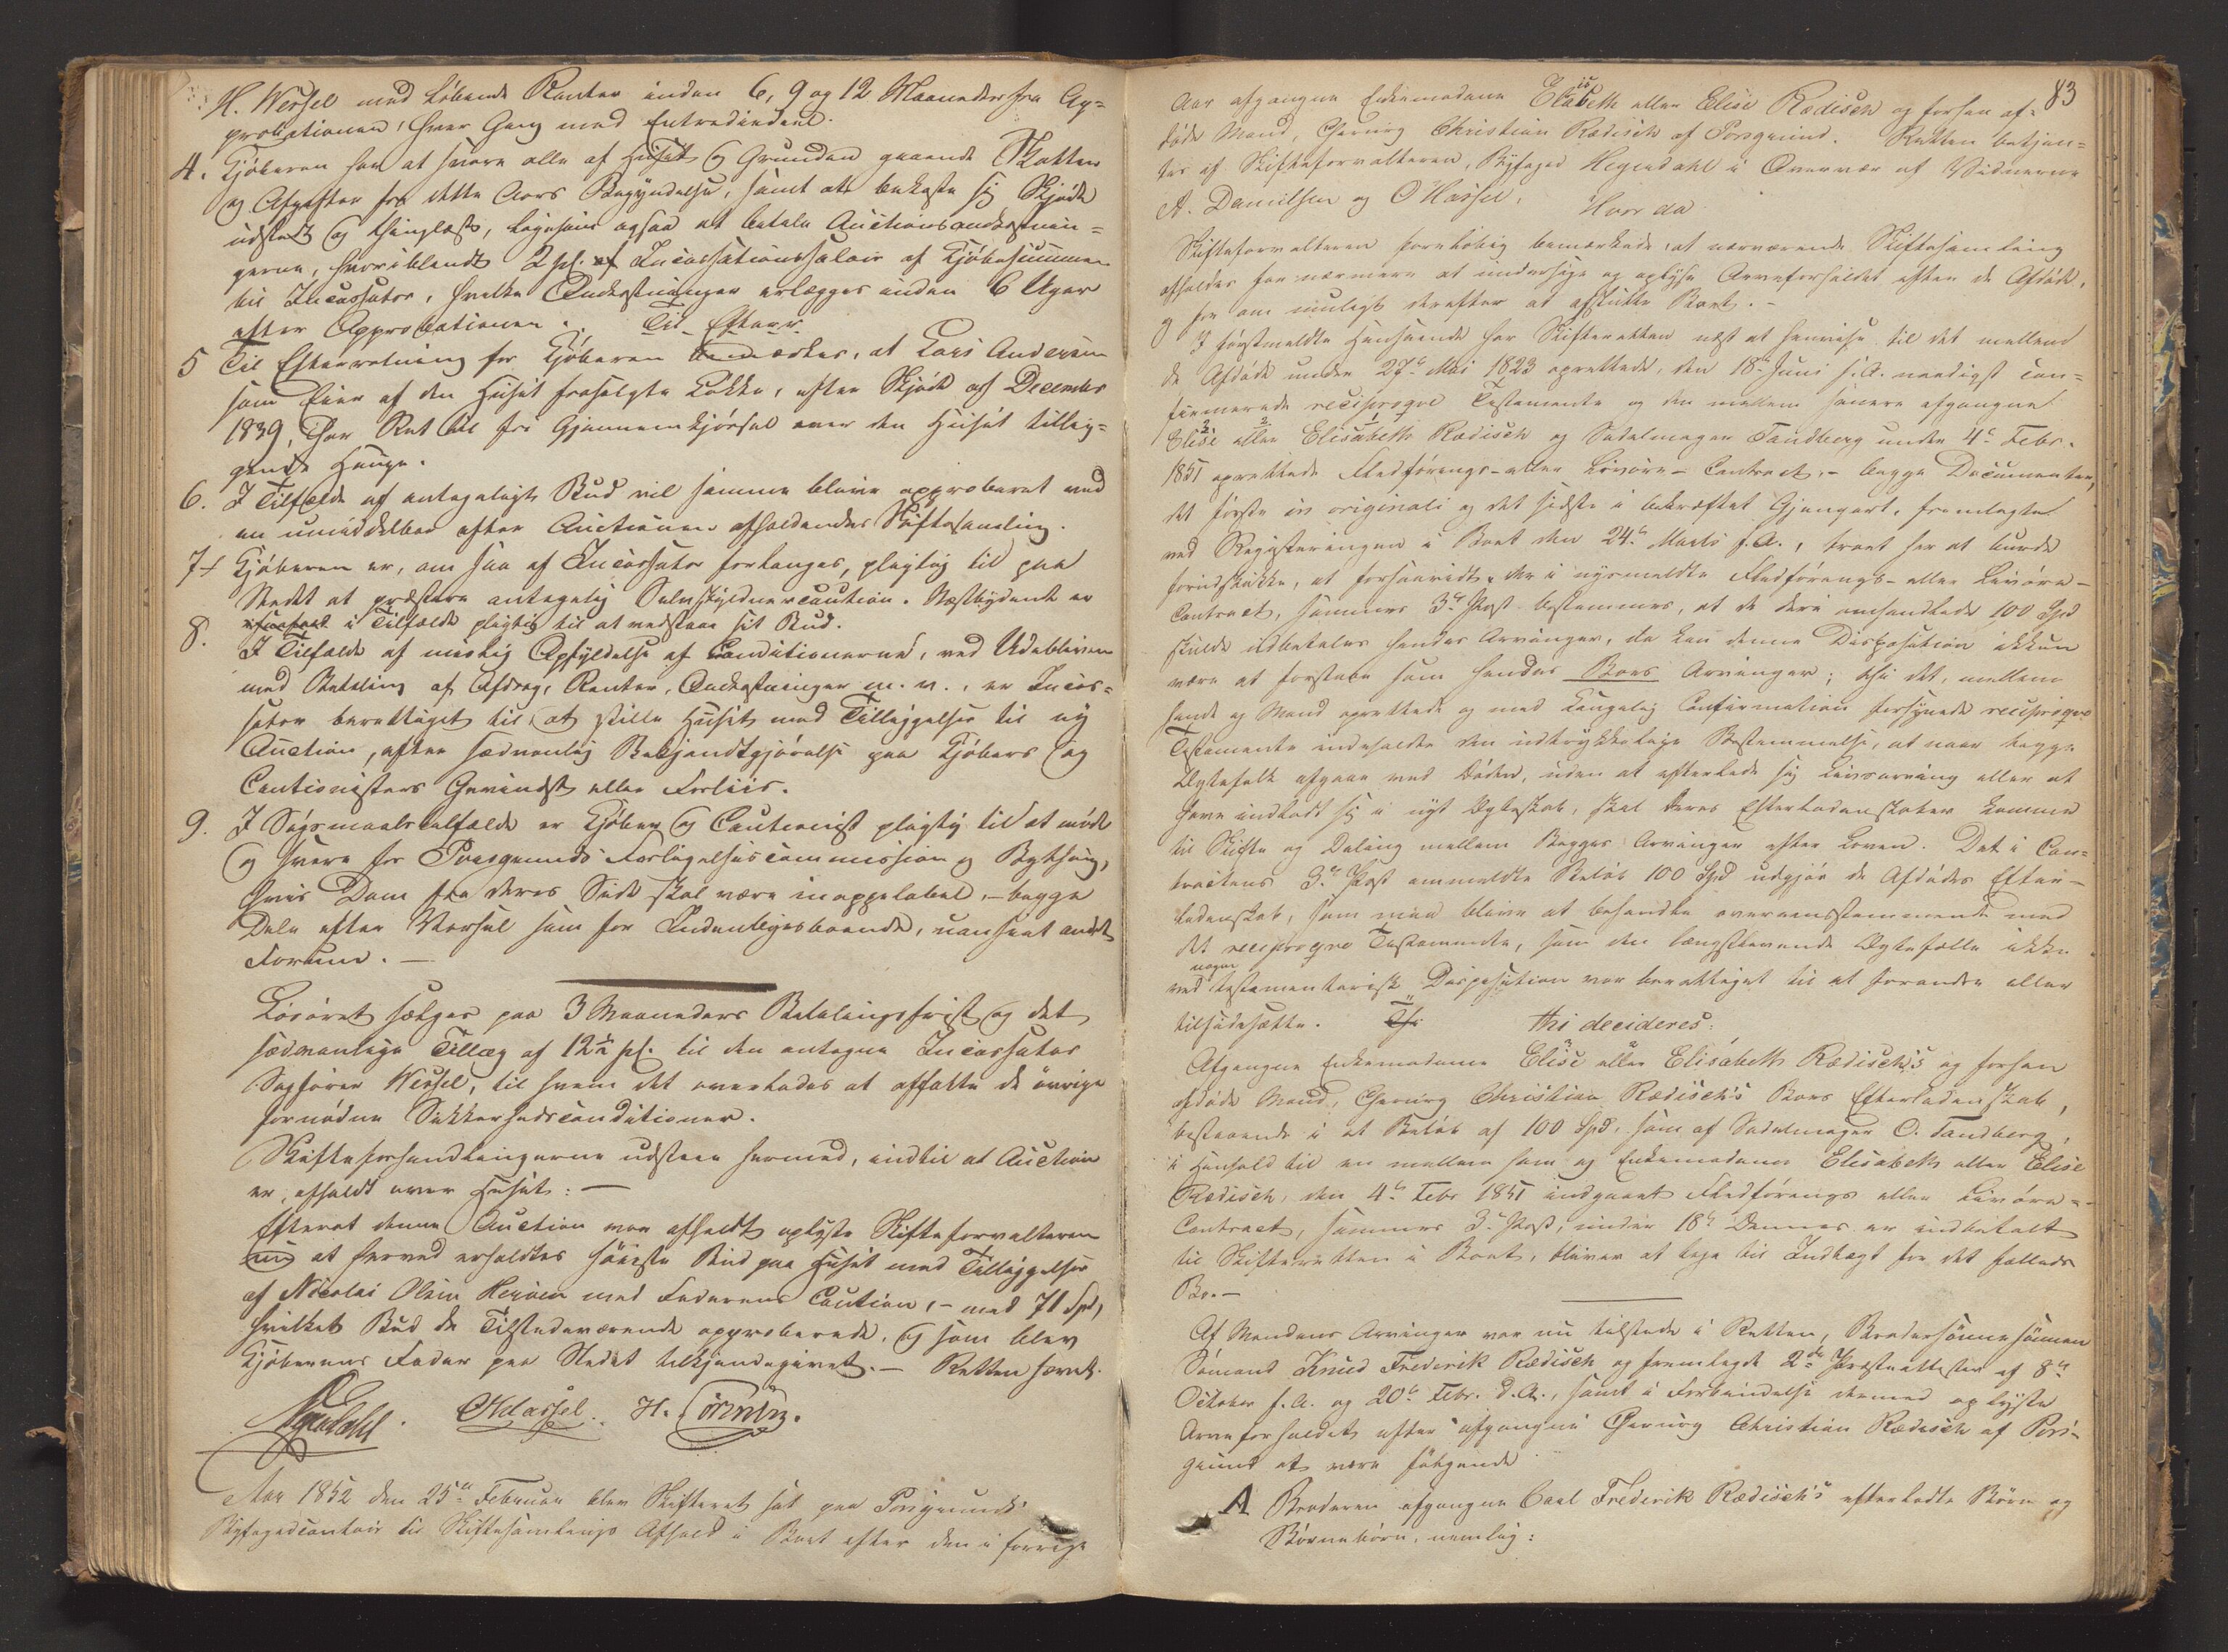 H. Wessel med løbende Renter inden 6, 9 og 12 Maaneder fra Ap=
probationen, hver Gang med Entrediedeel.
4. Kjøberen har at svare alle af Huset og Grunden gaaende Skatter
og Afgifter fra dette Aars Begyndelse, samt at bekoste sig Skjøde
udstedt og thinglæst, ligesom ogsaa at betale Auctionsomkostnin=
gerne, hvoriblandt 2 pC. af Incassationssalair af Kjøbesummen
til Incassator, hvilke Omkostninger erlægges inden 6 Uger
efter Approbationen. Til Efterr
5 Til Efterretning for Kjøberen bemærkes, at Lars Andersen
som Eier af den Huset frasolgte Løkke, efter Skjøde af December
1839, har Ret til fri Gjennemkjørsel over den Huset tillig=
gende Hauge.
6. I Tilfælde af antageligt Bud vil samme blive approberet ved
en umiddelbar efter Auctionen afholdendes Skiftesamling.
7 Kjøberen er, om saa af Incassator forlanges, pligtig til paa
Stedet at præstere antagelig Selvskyldnercaution. Næstbydende er
i Tilfælde pligtig til at vedstaae sit Bud.
8. I Tilfælde af mislig Opfyldelse af Conditionerne, ved Udebliven
med Betaling af Afdrag, Renter, Omkostninger m. v., er Incas=
sator berettiget til at stille Huset med Tilliggelser til ny
Auction, efter sædvanlig Bekjendtgjørelse paa Kjøbers og
Cautionisters Gevindst eller Forliis.
9. I Søgsmaalstilfælde er Kjøber og Cautionist pligtig til at møde
og svare for Porsgrunds Forligelsescommission og Bything,
hvis Dom fra deres Side skal være inappelabel, – begge
Dele efter Varsel som for Indenbyesboende, uanseet andet
Forum. –
Løsøret sælges paa 3 Maaneders Betalingsfrist og det
sædvanlige Tillæg af 12½ pC. til den antagne Incassator
Sagfører Wessel, til hvem det overlades at affatte de øvrige
fornødne Sikkerhedsconditioner.
Skifteforhandlingerne udstaae hermed, indtil at Auction
er afholdt over Huset: –
Efterat denne Auction var afholdt oplyste Skifteforvalteren
at herved erholdtes høieste Bud paa Huset med Tilliggelser
af Nicolai Olsen Herøen med Faderens Caution, – med 71 Spd,
hvilket Bud de Tilstedeværende approberede, og som blev
Kjøberens Fader paa Stedet tilkjendegivet. – Retten hævet.
Hegerdahl. O Hassel. H.
Aar 1852 den 25de Februar blev Skifteret sat paa Porsgrunds
Byfogedcontoir til Skiftesamlings Afhold i Boet efter den i forrige
83
Aar afgangne Enkemadame Elisabeth eller Elise Rædisch og forhen af=
døde Mand, Chirurg Christian Rædisch af Porsgrund. Retten betjen=
tes af Skifteforvalteren, Byfoged Hegerdahl i Overvær af Vidnerne
A. Danielsen og O Hassel. Hvor da
Skifteforvalteren foreløbig bemærkede, at nærværende Skiftesamling
afholdes for nærmere at undersøge og oplyse Arveforholdet efter de Afdøde,
og for om muligt derefter at afslutte Boet. –
I førstmeldte Henseende har Skifteretten næst at henvise til det mellem
de Afdøde under 27de Mai 1823 oprettede, den 18de Juni s. A. naadigst con=
firmerede reciproqve Testamente og den mellem senere afgangne
Elise eller Elisabeth Rædisch og Sadelmager Tandberg under 4de Febr.
1851 oprettede Fledførings- eller Livøre-Contract, – begge Documenter,
det første in originali og det sidste i bekræftet Gjenpart, fremlagte
ved Registeringen i Boet den 24de Marts f. A., troet her at burde
forudskikke, at forsaavidt der i nysmeldte Fledførings- eller Livøre-
Contract, sammes 3de Post bestemmes, at de deri omhandlede 100 Spd
skulde udbetales hendes Arvinger, da kan denne Disposition ikkun
være at forstaae som hendes Boes Arvinger; thi det, mellem
hende og Mand oprettede og med kongelig Confirmation forsynede reciproqve
Testamente indeholder den udtrykkelige Bestemmelse, at naar begge
Ægtefolk afgaae ved Døden, uden at efterlade sig Livsarving eller at
have indladt sig i nyt Ægteskab, skal deres Efterladenskaber komme
til Skifte og Deling mellem Begges Arvinger efter Loven. Det i Con=
tractens 3de Post ommeldte Beløb 100 Spd udgjør de Afdødes Efter=
ladenskab, som maa blive at behandle overeensstemmende med
det reciproqve Testamente, som den længstlevende Ægtefælle ikke
ved nogen testamentarisk Disposition var berettiget til at forandre eller
tilsidesætte. Thi thi decideres:
Afgangne Enkemadame Elise eller Elisabeth Rædisch's og forhen
afdøde Mand, Chirurg Christian Rædisch's Boes Efterladenskab,
bestaaende i et Beløb af 100 Spd. som af Sadelmager O. Tandberg,
i Henhold til en mellem ham og Enkemadame Elisabeth eller Elise
Rædisch, den 4de Febr 1851 indgaaet Fledførings eller Livøre=
Contract, sammes 3de Post, under 18de Dennes er indbetalt
til Skifteretten i Boet, bliver at tage til Indtægt for det fælleds
Bo. –
Af Mandens Arvinger var nu tilstede i Retten, Brodersønnesønnen
Sømand Knud Frederik Rædisch og fremlagde 2de Præsteattester af 8de
October f. A. og 20de Febr. d. A., samt i Forbindelse dermed oplyste
Arveforholdet efter afgangne Chirurg Christian Rædisch af Pors=
grund at være følgende
A Broderen afgangne Carl Frederik Rædisch's efterladte Børn og
Børnebørn, nemlig: